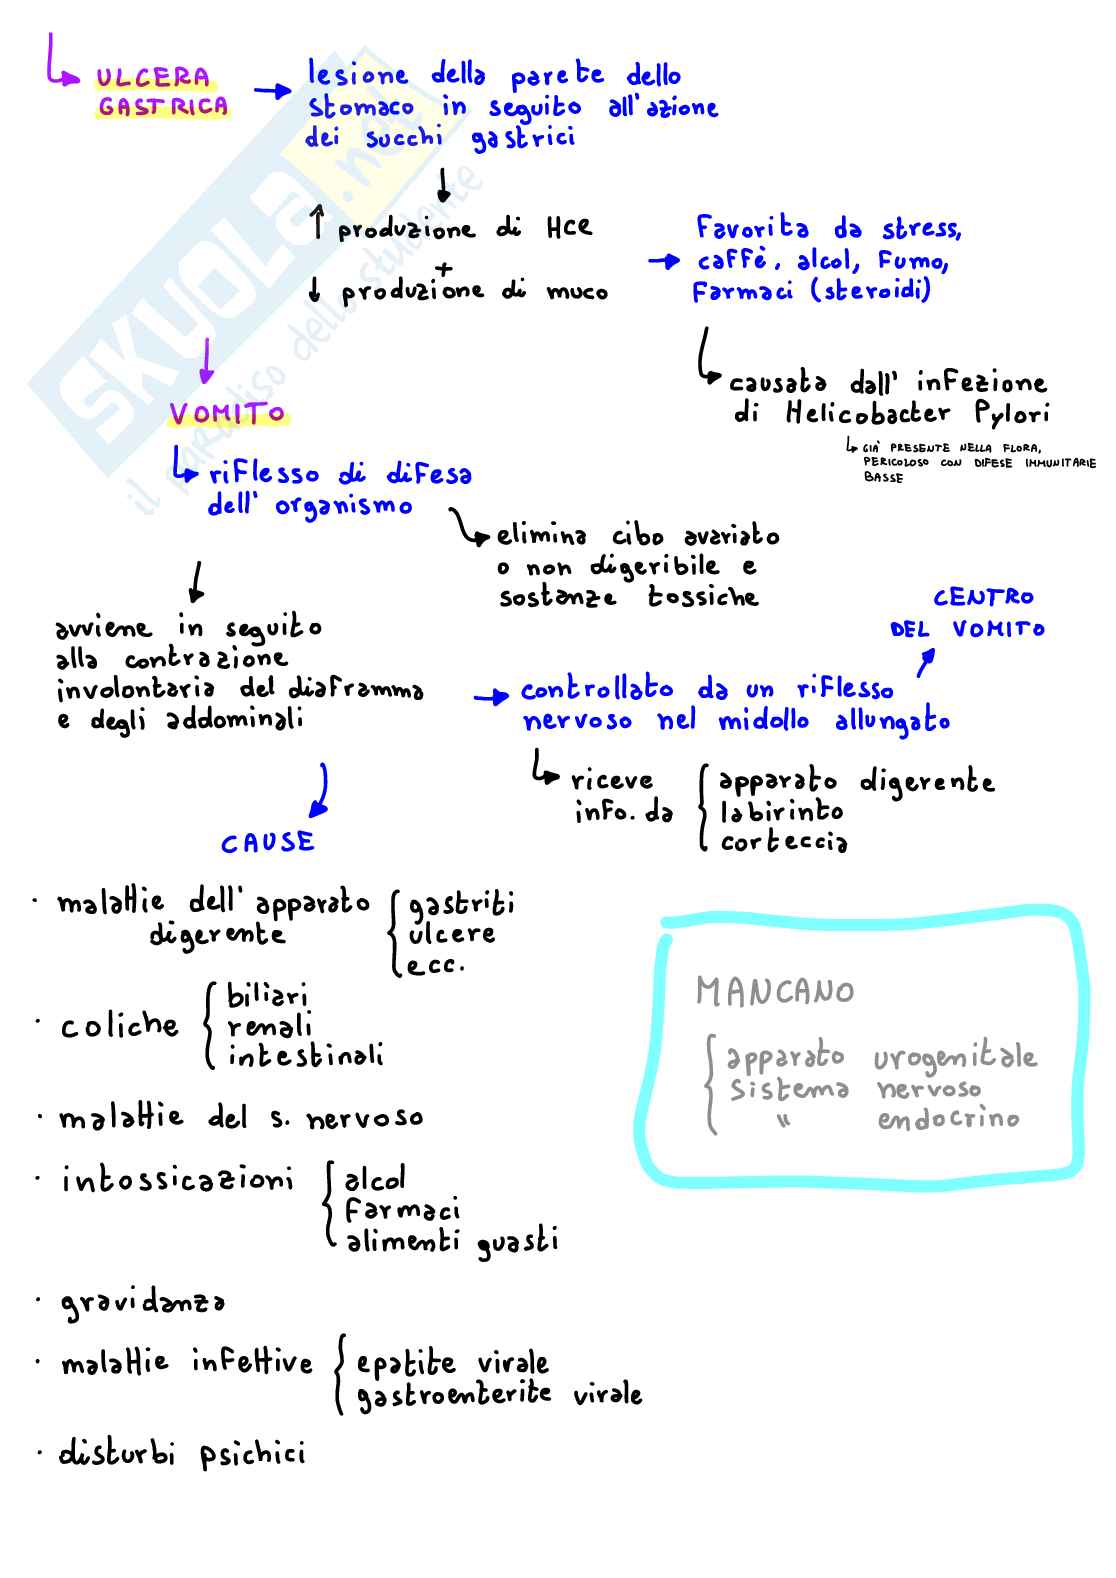 ULCERA
GASTRICA
lesione della parete dello
stomaco in seguito all'azione
dei succhi gastrici
↑ produzione di HCl
+
↓ produzione di muco
Favorita da stress,
caffè, alcol, fumo,
Farmaci (steroidi)
causata dall' infezione
di Helicobacter Pylori
GIÀ PRESENTE NELLA FLORA,
PERICOLOSO CON DIFESE IMMUNITARIE
BASSE
VOMITO
riflesso di difesa
dell' organismo
elimina cibo avariato
o non digeribile e
sostanze tossiche
avviene in seguito
alla contrazione
involontaria del diaframma
e degli addominali
controllato da un riflesso
nervoso nel midollo allungato
CENTRO
DEL VOMITO
riceve
info. da
apparato digerente
labirinto
corteccia
CAUSE
· malattie dell' apparato
digerente
gastriti
ulcere
ecc.
· coliche
biliari
renali
intestinali
· malattie del s. nervoso
· intossicazioni
alcol
farmaci
alimenti guasti
· gravidanza
· malattie infettive
epatite virale
gastroenterite virale
· disturbi psichici
MANCANO
apparato urogenitale
sistema nervoso
" endocrino
SKUOLA.net
il paradiso dello studente